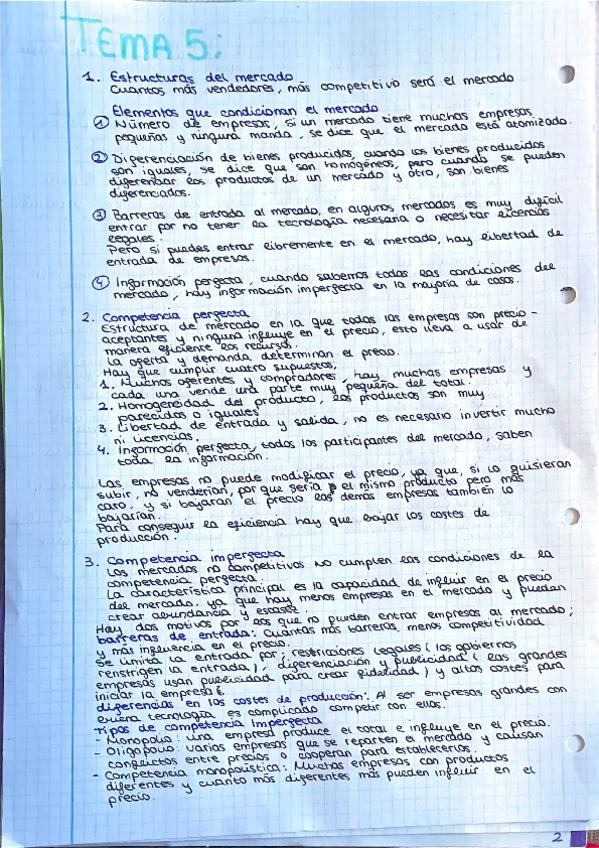 TEMA 5:
1. Estructuras del mercado
Cuantos más vendedores, más competitivo será el mercado
Elementos que condicionan el mercado
① Número de empresas, si un mercado tiene muchas empresas,
pequeñas y ninguna manda, se dice que el mercado está atomizado.
② Diferenciación de bienes producidos, cuando los bienes producidos
son iguales, se dice que son homogéneos, pero cuando se pueden
diferenciar los productos de un mercado y otro, son bienes
diferenciados.
③ Barreras de entrada al mercado, en algunos mercados es muy dificil
entrar por no tener la tecnología necesaria o necesitar licencias
legales.
Pero si puedes entrar libremente en el mercado, hay libertad de
entrada de empresas.
④ Información perfecta, cuando sabemos todas las condiciones del
mercado, hay información imperfecta en la mayoria de casos.
2. Competencia perfecta
Estructura de mercado en la que todas las empresas son precio-
aceptantes y ninguna influye en el precio, esto lleva a usar de
manera eficiente los recursos.
La oferta y demanda determinan el precio.
Hay que cumplir cuatro supuestos;
1. Muchos oferentes y compradores, hay muchas empresas y
cada una vende una parte muy pequeña del total.
2. Homogeneidad del producto, los productos son muy
parecidos o iguales
3. Libertad de entrada y salida, no es necesario invertir mucho
ni licencias.
4. Información perfecta, todos los participantes del mercado, saben
toda la información.
Las empresas no puede modificar el precio, ya que, si lo quisieran
subir, no venderian, por que seria el mismo producto pero más
caro, y si bajaran el precio las demás empresas también lo
bajarían.
Para conseguir la eficiencia hay que bajar los costes de
producción.
3. Competencia imperfecta
Los mercados no competitivos no cumplen las condiciones de la
competencia perfecta.
La característica principal es la capacidad de influir en el precio
del mercado, ya que hay menos empresas en el mercado y pueden
crear abundancia y escasez.
Hay dos motivos por los que no pueden entrar empresas al mercado;
barreras de entrada: Cuantas más barreras, menos competitividad
y más influencia en el precio.
Se limita la entrada por; restricciones legales (los gobiernos
renstrigen la entrada), diferenciación y publicidad (las grandes
empresas usan publicidad para crear fidelidad) y altos costes para
iniciar la empresa
diferencias en los costes de producción: Al ser empresas grandes con
buena tecnología es complicado competir con ellos.
Tipos de competencia imperfecta
- Monopolio: Una empresa produce el total e influye en el precio.
- Oligopolio: varias empresas que se reparten el mercado y causan
conflictos entre precios o cooperan para establecerlos.
- Competencia monopolística: Muchas empresas con productos
diferentes y cuanto más diferentes más pueden influir en el
precio.
2